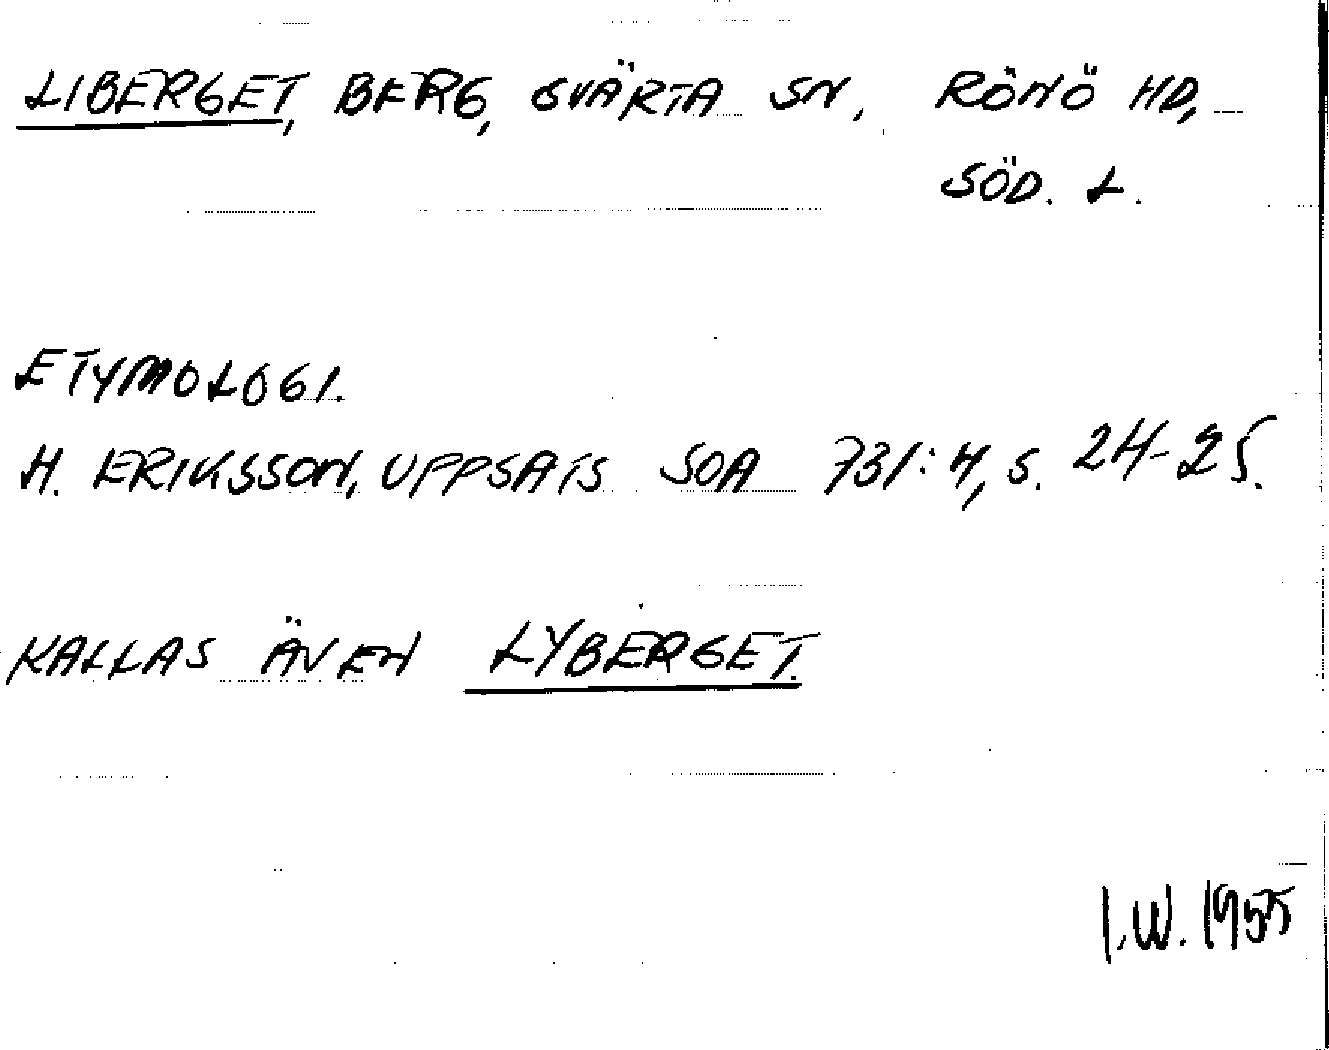 LIBERGET, BERG, SVÄRTA SN, RÖNÖ HD,
SÖD. L.
ETYMOLOGI.
H. ERIKSSON, UPPSATS SOA 731:4, S. 24-25.
KALLAS ÄVEN LYBERGET.
I.W. 1955